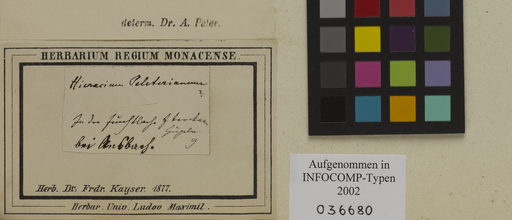 determ. Dr. A. Peter.
HERBARIUM REGIUM MONACENSE
Hieracium Peleterianum
?
In der
bei Ansbach.
Herb. Dr. Frdr. Kayser. 1877.
Herbar. Univ. Ludov. Maximil.
Aufgenommen in
INFOCOMP-Typen
2002
036680